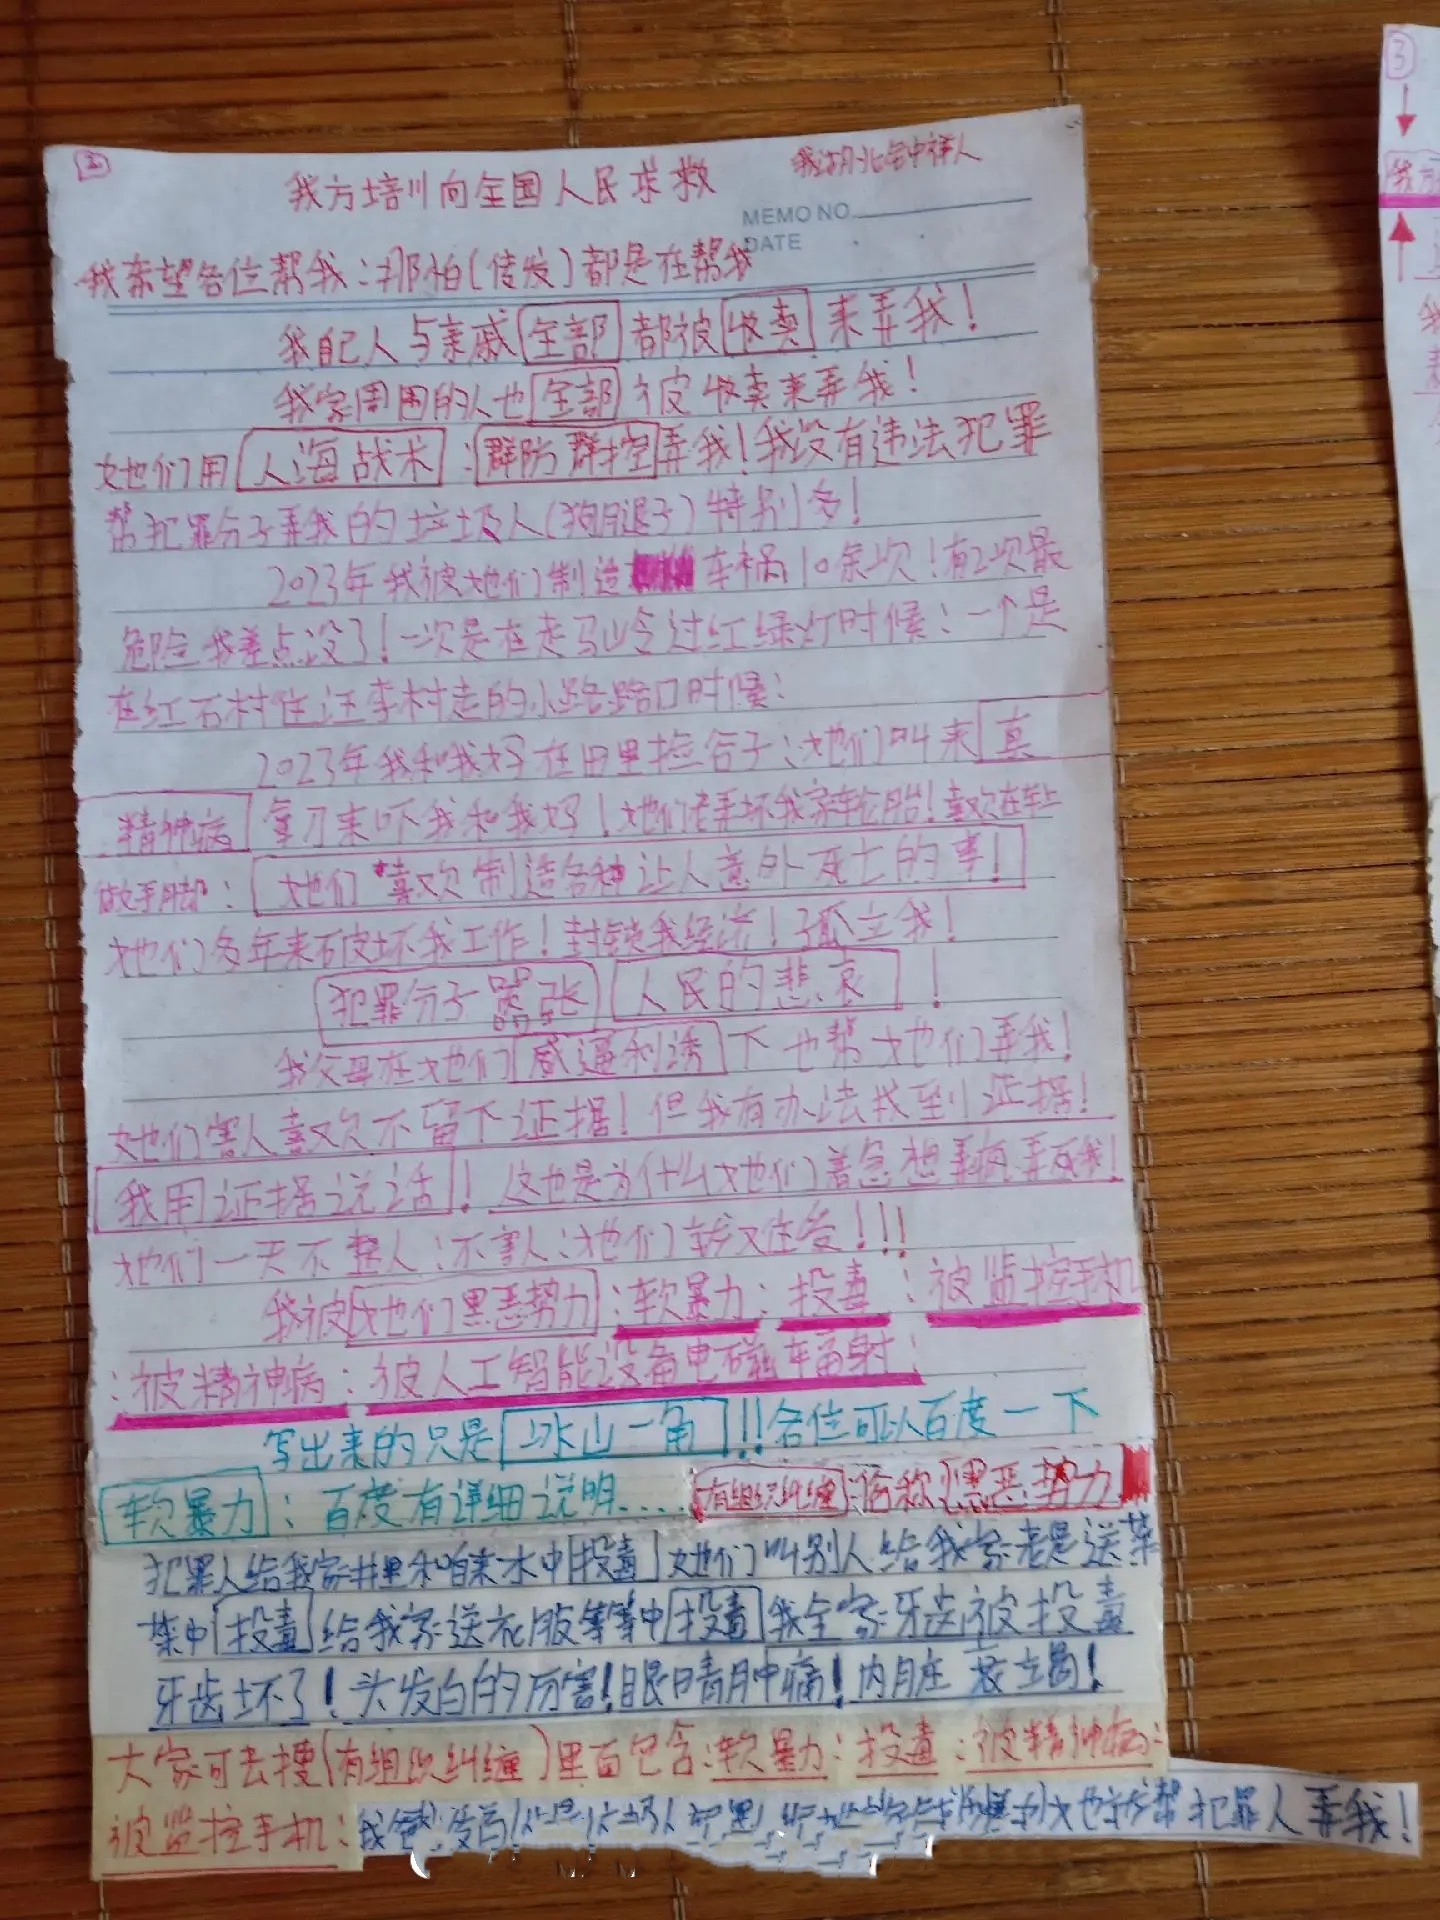 我方培川向全国人民求救
我湖北省钟祥人
MEMO NO.
DATE
我希望各位帮我:哪怕(传发)都是在帮我
我自己人与亲戚全部都被收卖来弄我!
我家周围的人也全部被收卖来弄我!
她们用人海战术:群防群控弄我!我没有违法犯罪
帮犯罪分子弄我的垃圾人(狗腿子)特别多!
2023年我被她们制造车祸10余次!有2次最
危险我差点没了!一次是在走马山令过红绿灯时候:一个是
在红石村往汪李村走的小路路口时候:
2023年我和我妈在田里捡谷子:她们叫来真
精神病拿刀来吓我和我妈!她们老弄坏我家轮胎!喜欢在车上
做手脚:她们喜欢制造各种让人意外死亡的事!
她们多年来破坏我工作!封锁我经济!孤立我!
犯罪分子嚣张 人民的悲哀!
我父母在她们威逼利诱下也帮她们弄我!
她们害人喜欢不留下证据!但我有办法找到证据!
我用证据说话!这也是为什么她们着急想弄疯弄死我!
她们一天不整人:不害人:她们难受!!!
我被她们黑恶势力:软暴力:投毒:被监控手机
:被精神病:被人工智能设备电磁辐射:
写出来的只是冰山一角!!各位可以百度一下
软暴力:百度有详细说明....有组织纠缠:俗称黑恶势力
犯罪人给我家井里和自来水中投毒 她们叫别人给我家老是送菜
菜中投毒给我家送衣服等等中投毒我全家牙齿被投毒
牙齿坏了!头发白的厉害!眼睛肿痛!内脏衰竭!
大家可去搜(有组织纠缠)里面包含:软暴力:投毒:被精神病:
被监控手机:我爸 帮犯罪人弄我!
3
我方